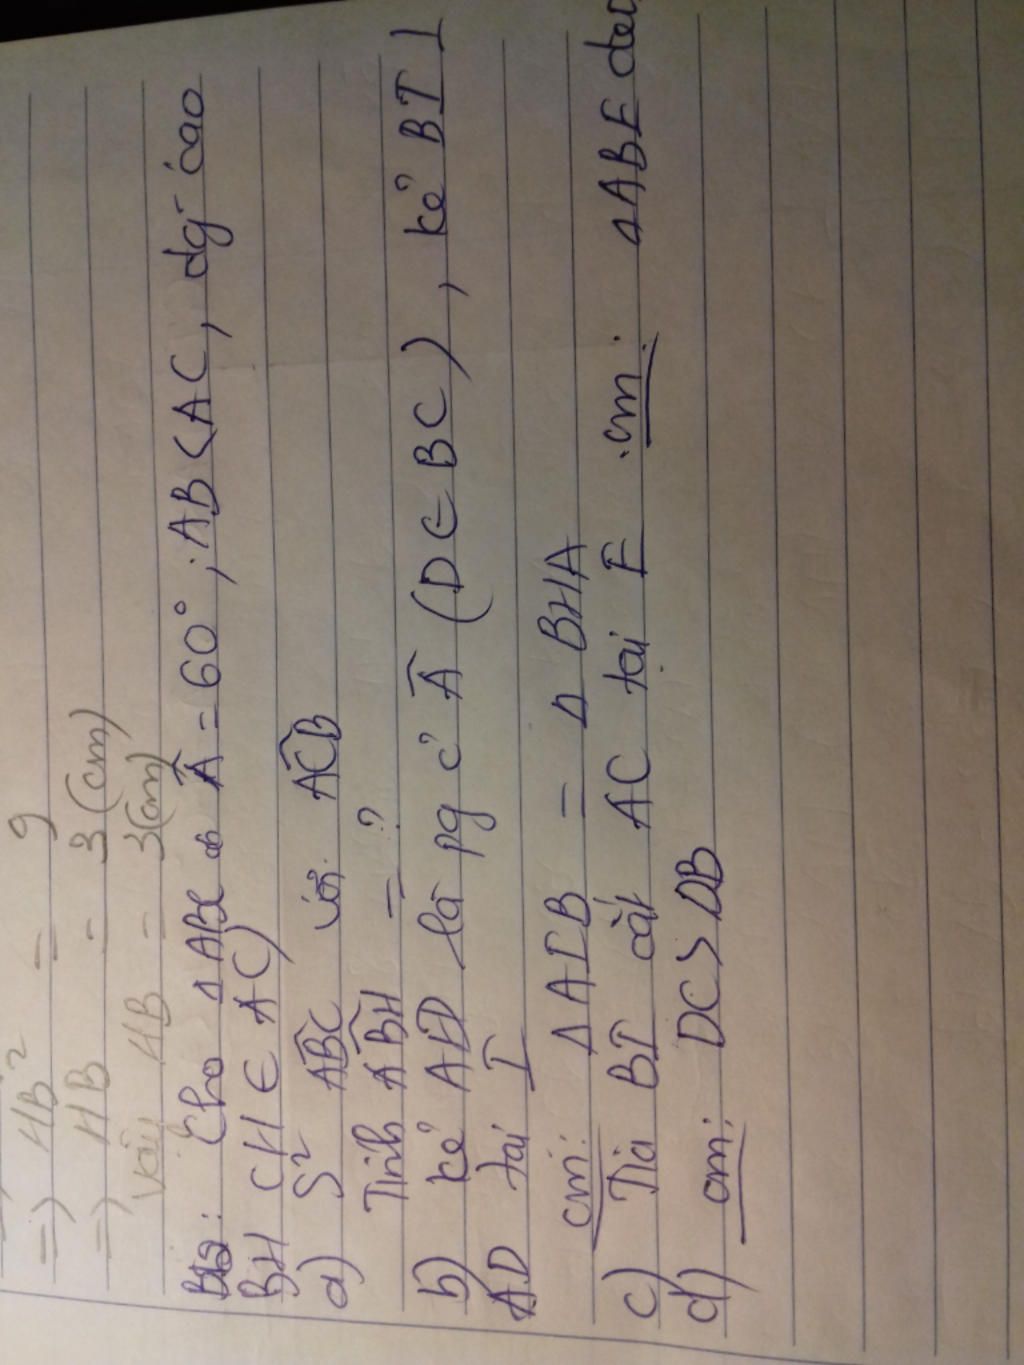 => HB² = 9
=> HB = 3 (cm)
vậy HB = 3 (cm)
Bài 2: Cho ΔABC có Â = 60°; AB < AC, đg- cao
BH (H ∈ AC)
a) S² ABC với ACB
Tính ABH = ?
b) kẻ AD là pg c' Â (D ∈ BC), kẻ BI ⊥
AD tại I
cm: ΔAIB = ΔBHA
c) Tia BI cắt AC tại E. cm: ΔABE đều
d) cm: DC > DB